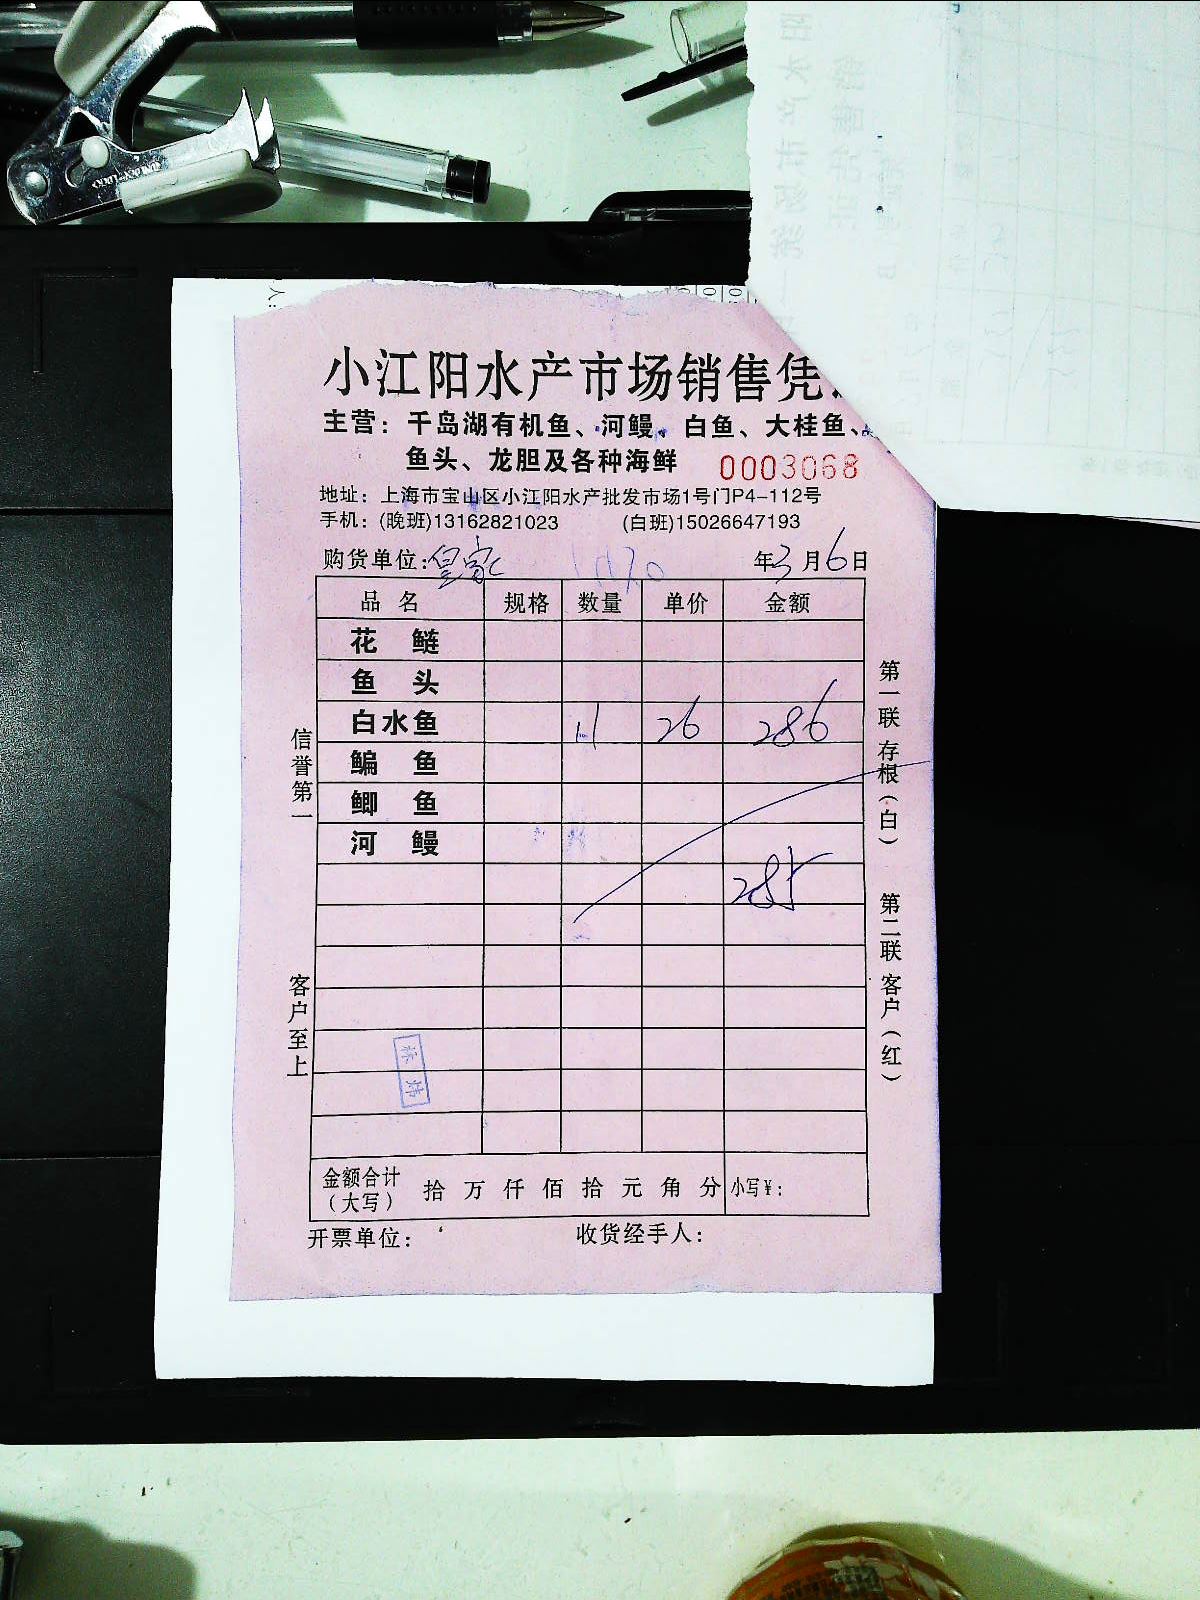 小江阳水产市场销售凭
主营：千岛湖有机鱼、河鳗、白鱼、大桂鱼、
鱼头、龙胆及各种海鲜 0003068
地址：上海市宝山区小江阳水产批发市场1号门P4-112号
手机：(晚班)13162821023 (白班)15026647193
购货单位：皇家 年3月6日
品名 规格 数量 单价 金额
花鲢
鱼头
白水鱼 11 26 286
鳊鱼
鲫鱼
河鳗
285
金额合计（大写） 拾万仟佰拾元角分 小写￥：
开票单位： 收货经手人：
信誉第一
客户至上
第一联 存根（白）
第二联 客户（红）